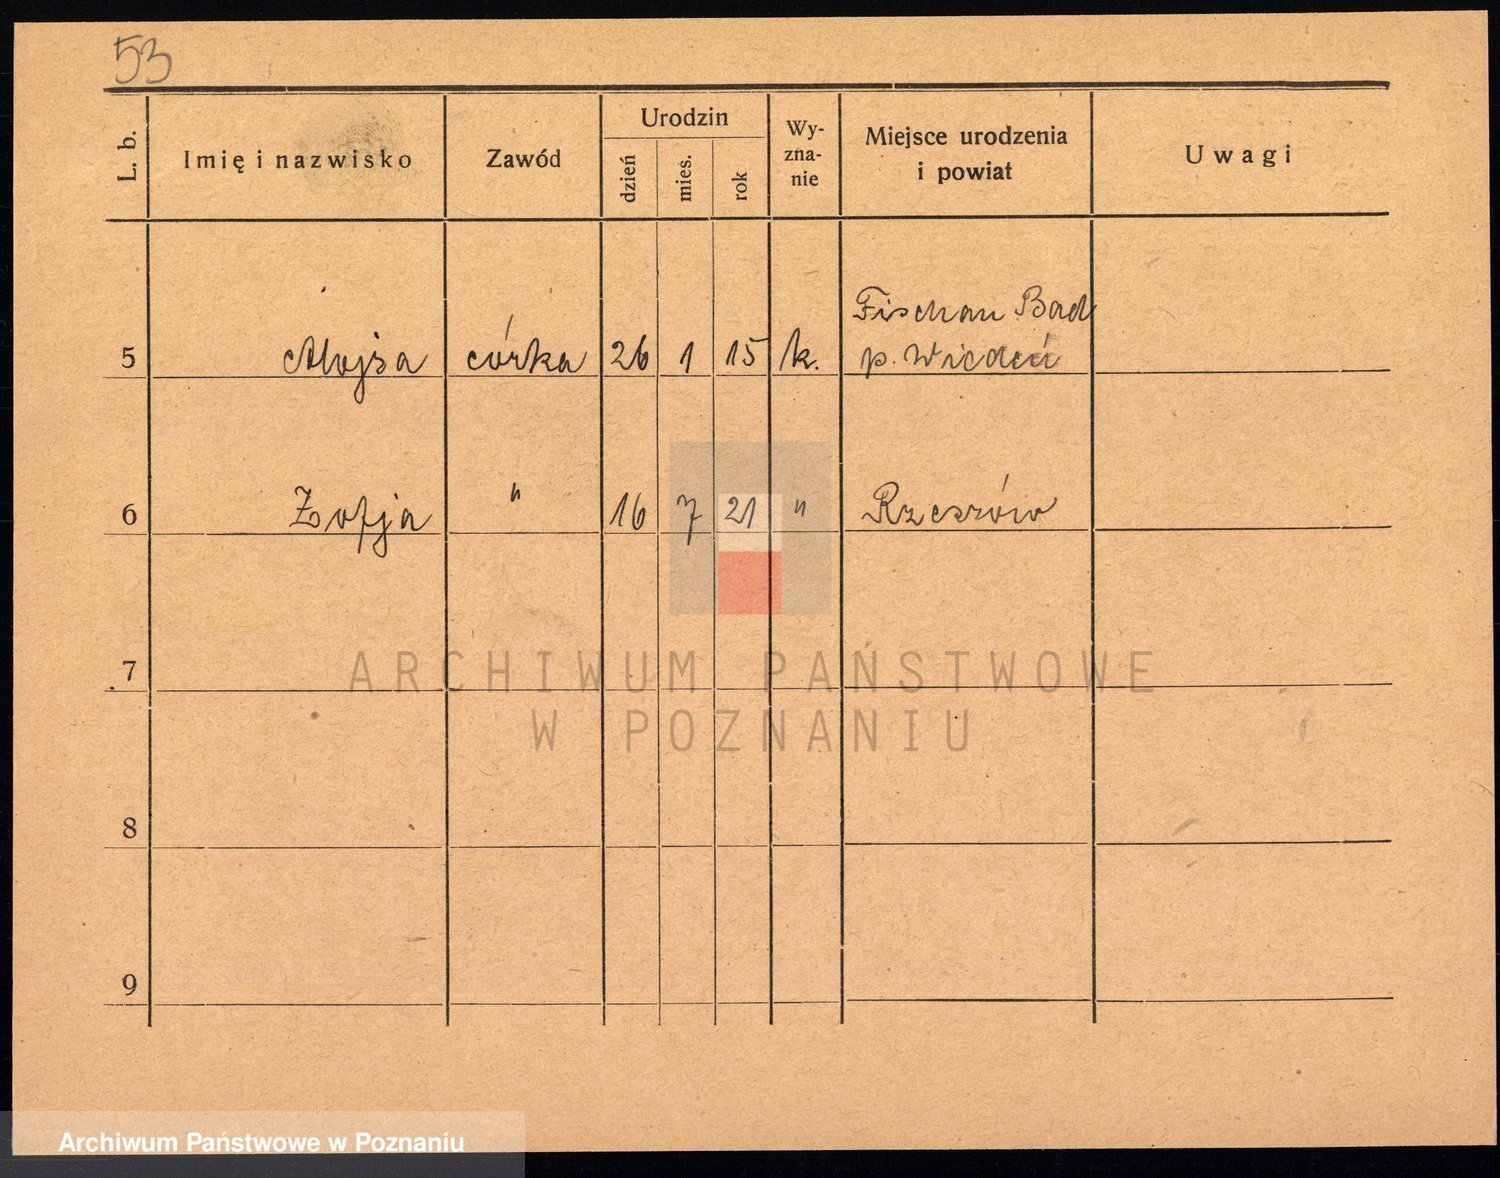 53
L. b.
Imię i nazwisko
Zawód
Urodzin
dzień
mies.
rok
Wy-
zna-
nie
Miejsce urodzenia
i powiat
Uwagi
Fischau Bad
5 Alojza córka 26 1 15 k. p. Wiedeń
6 Zofja " 16 7 21 " Rzeszów
7
ARCHIWUM PAŃSTWOWE
W POZNANIU
8
9
Archiwum Państwowe w Poznaniu